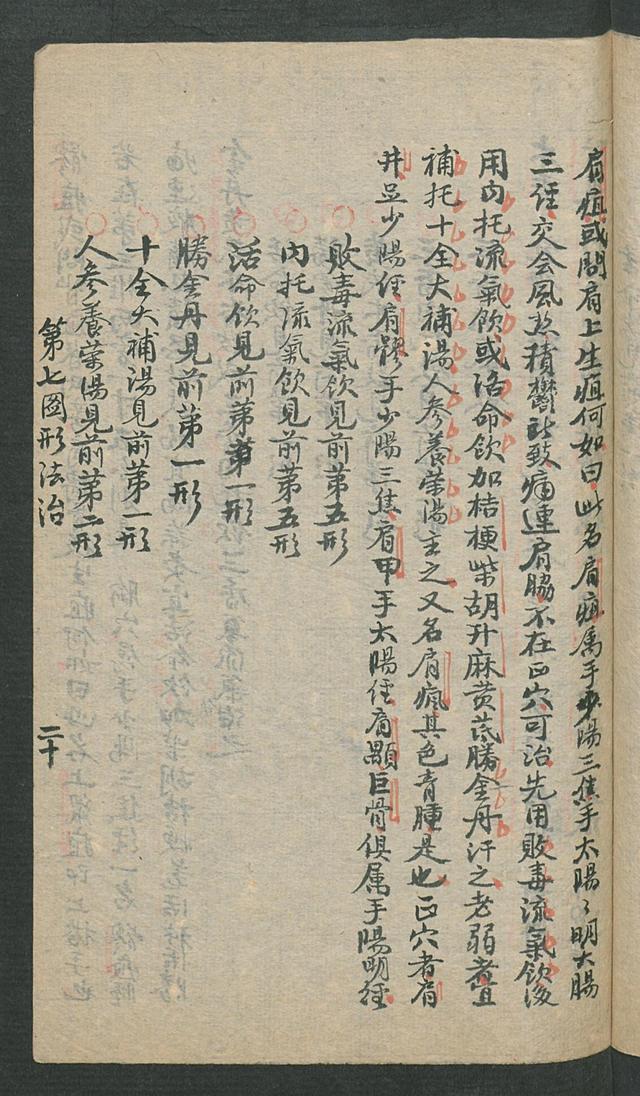 肩疽或問肩上生疽何如曰此名肩疽属手少陽三焦手太陽〻明大腸
三経交会風热積鬱所致痛連肩脇不在正穴可治先用敗毒流氣飲後
用内托流氣飲或活命飲加桔梗柴胡升麻黄芪勝金丹汗之老弱者宜
補托十全大補湯人參養荣湯主之又名肩瘋其色青腫是也正穴者肩
井足少陽経肩髎手少陽三焦肩甲手太陽経肩顒巨骨俱属手陽明経
敗毒流氣飲見前第五形
内托流氣飲見前第五形
活命飲見前第一形
勝金丹見前第一形
十全大補湯見前第二形
人參養荣湯見前第二形
第七啚形法治
二十